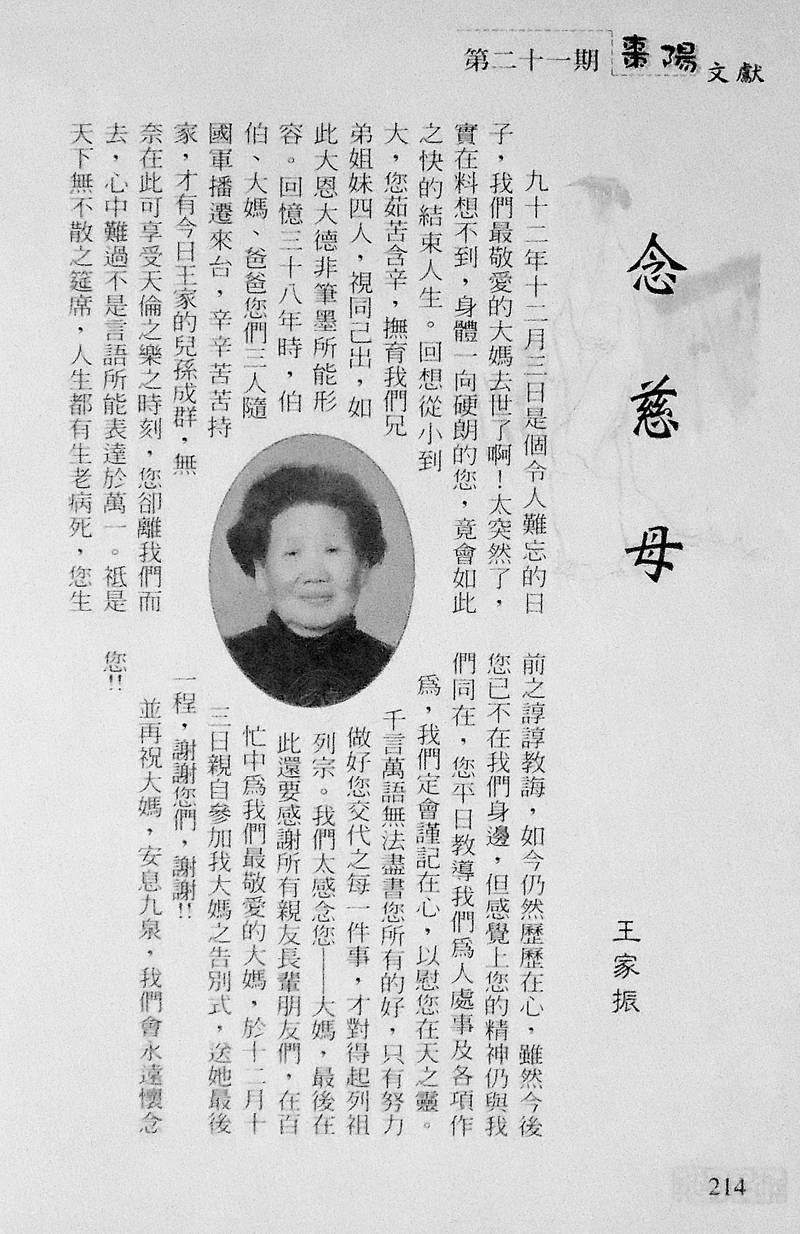 第二十一期 棗陽文獻
念慈母
王家振
九十二年十二月三日是個令人難忘的日
子，我們最敬愛的大媽去世了啊！太突然了，
實在料想不到，身體一向硬朗的您，竟會如此
之快的結束人生。回想從小到
大，您茹苦含辛，撫育我們兄
弟姐妹四人，視同己出，如
此大恩大德非筆墨所能形
容。回憶三十八年時，伯
伯、大媽、爸爸您們三人隨
國軍播遷來台，辛辛苦苦持
家，才有今日王家的兒孫成群，無
奈在此可享受天倫之樂之時刻，您卻離我們而
去，心中難過不是言語所能表達於萬一。祗是
天下無不散之筵席，人生都有生老病死，您生
前之諄諄教誨，如今仍然歷歷在心，雖然今後
您已不在我們身邊，但感覺上您的精神仍與我
們同在，您平日教導我們爲人處事及各項作
爲，我們定會謹記在心，以慰您在天之靈。
千言萬語無法盡書您所有的好，只有努力
做好您交代之每一件事，才對得起列祖
列宗。我們太感念您——大媽，最後在
此還要感謝所有親友長輩朋友們，在百
忙中爲我們最敬愛的大媽，於十二月十
三日親自參加我大媽之告別式，送她最後
一程，謝謝您們，謝謝!!
並再祝大媽，安息九泉，我們會永遠懷念
您!!
214